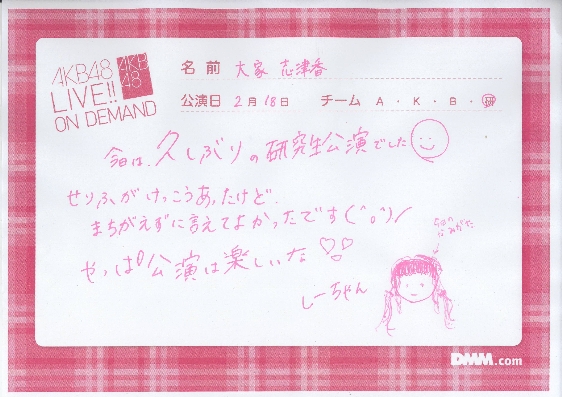 AKB48
LIVE!!
ON DEMAND
AKB
48
名前 大家 志津香
公演日 2月18日 チーム A・K・B・研
今日は、久しぶりの研究生公演でした
せりふがけっこうあったけど、
まちがえずに言えてよかったです(^o^)/
やっぱ公演は楽しいな♡
しーちゃん
DMM.com